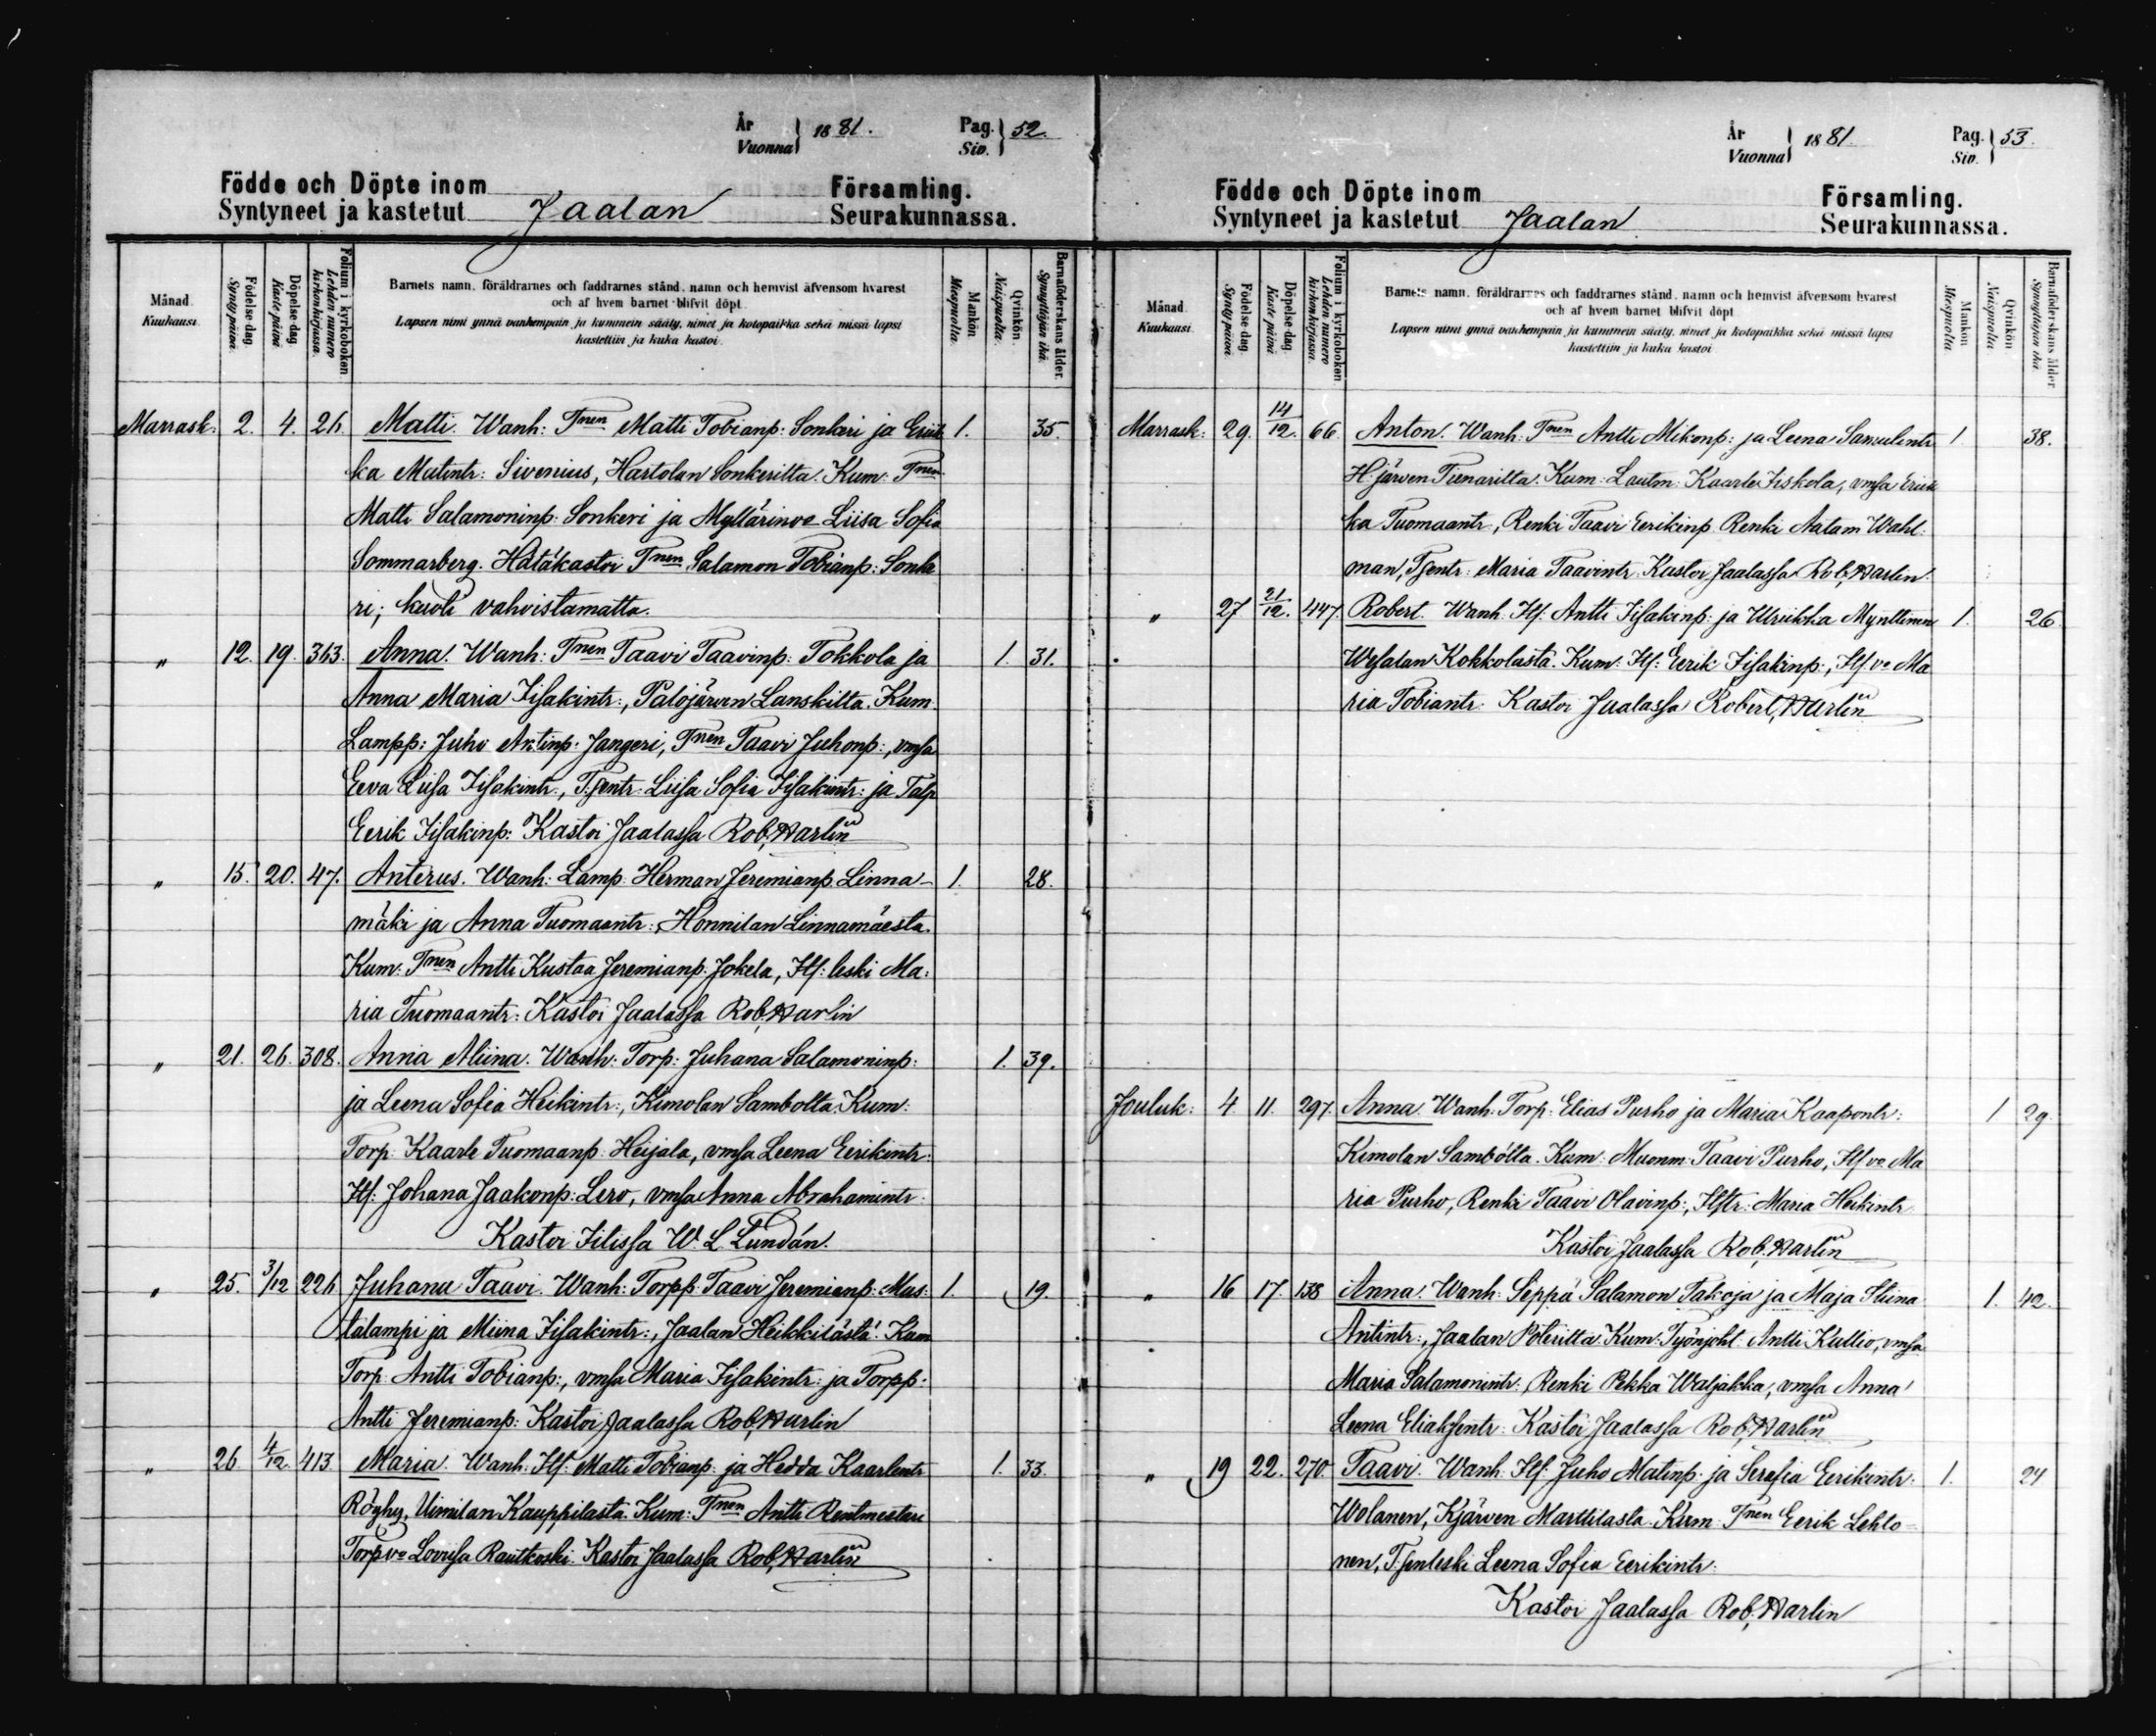 År Vuonna 1881. Pag. Siv. 52.
Födde och Döpte inom Församling.
Syntyneet ja kastetut Jaalan Seurakunnassa.
Månad. Kuukausi.
Födelse-dag. Synty-päivä.
Döpelse-dag. Kaste-päivä.
Folium i kyrkoboken. Lehden numero kirkonkirjassa.
Barnets namn, föräldrarnes och faddrarnes stånd, namn och hemvist äfvensom hvarest
och af hvem barnet blifvit döpt.
Lapsen nimi ynnä vanhempain ja kummein sääty, nimet ja kotopaikka sekä missä lapsi
kastettiin ja kuka kastoi.
Mankön. Miespuolta.
Qvinkön. Naispuolta.
Barnaföderskans ålder. Synnyttäjän ikä.
Marrask. 2. 4. 26. Matti. Wanh: Tnen Matti Tobianp: Sonkari ja Eriik 1. 35.
ka Matintr: Sivenius, Hartolan Sonkerilta. Kum: Tnen
Matti Salamoninp: Sonkeri ja Myllärinvo Liisa Sofia
Sommarberg. Hätäkastoi Tnen Salamon Tobianp: Sonka
ri; kuoli vahvistamatta.
" 12. 19. 363. Anna. Wanh: Tnen Taavi Taavinp: Tokkola ja 1. 31.
Anna Maria Iisakintr:, Palojärven Lanskilta. Kum.
Lampp: Juho Antinp: Jangeri, Tnen Taavi Juhonp:, vmsa
Eeva Liisa Iisakintr:, T.sentr. Liisa Sofia Iisakintr: ja Talp
Eerik Iisakinp: Kastoi Jaalassa Rob. Harlin
" 15. 20. 47. Anterus. Wanh: Lamp: Herman Jeremianp. Linna- 1. 28.
mäki ja Anna Tuomaantr:, Honnilan Linnamäesta.
Kum: Tnen Antti Kustaa Jeremianp. Jokela, Itf: leski Ma:
ria Tuomaantr: Kastoi Jaalassa Rob. Harlin
" 21. 26. 308. Anna Aliina. Wanh: Torp: Juhana Salamoninp: 1. 39.
ja Leena Sofia Heikintr:, Kimolan Sambolta. Kum:
Torp: Kaarle Tuomaanp: Heijala, vmsa Leena Eerikintr:
Itf: Johana Jaakonp: Lero, vmsa Anna Abrahamintr:
Kastoi Iitissa W. L. Lundán.
" 25. 3/12 226. Juhana Taavi. Wanh: Torpp. Taavi Jeremianp: Mus: 1. 19.
talampi ja Miina Iisakintr:, Jaalan Heikkilästä. Kum
Torp. Antti Tobianp:, vmsa Maria Iisakintr: ja Torpp:
Antti Jeremianp: Kastoi Jaalassa Rob. Harlin
" 26. 4/12. 413. Maria. Wanh: Itf: Matti Tobianp: ja Hedda Kaarlentr 1. 33.
Röyhy, Uimilan Kauppilasta. Kum: Tnen Antti Rentmestari
Torpvo Lovisa Rautkoski. Kastoi Jaalassa Rob. Harlin
År Vuonna 1881. Pag. Siv. 53.
Födde och Döpte inom Församling.
Syntyneet ja kastetut Jaalan Seurakunnassa.
Månad. Kuukausi.
Födelse-dag. Synty-päivä.
Döpelse-dag. Kaste-päivä.
Folium i kyrkoboken. Lehden numero kirkonkirjassa.
Barnets namn, föräldrarnes och faddrarnes stånd, namn och hemvist äfvensom hvarest
och af hvem barnet blifvit döpt.
Lapsen nimi ynnä vanhempain ja kummein sääty, nimet ja kotopaikka sekä missä lapsi
kastettiin ja kuka kastoi.
Mankön. Miespuolta.
Qvinkön. Naispuolta.
Barnaföderskans ålder. Synnyttäjän ikä.
Marrask: 29. 14/12. 66. Anton. Wanh: Tnen Antti Mikonp: ja Leena Samulintr 1. 38.
H:järven Tienarilta. Kum: Lautm: Kaarle Iiskola, vmsa Eriik
ka Tuomaantr:, Renki Taavi Eerikinp. Renki Aatam Wahl:
man, T.sentr: Maria Taavintr. Kastoi Jaalassa Rob. Harlin.
" 27 21/12. 447. Robert. Wanh. Itf: Antti Iisakinp: ja Ulriikka Mynttinen 1. 26.
Wesalan Kokkolasta. Kum: Itf: Eerik Iisakinp:, Itf vo Ma
ria Tobiantr: Kastoi Jaalassa Robert Harlin
Jouluk: 4. 11. 297. Anna. Wanh: Torp: Elias Purho ja Maria Kaapontr: 1 29.
Kimolan Sambolta. Kum: Muonm: Taavi Purho, Itf vo Ma
ria Purho, Renki Taavi Olavinp:, Itftr: Maria Heikintr
Kastoi Jaalassa Rob. Harlin
" 16 17. 138 Anna. Wanh: Seppä Salamon Takoja ja Maja Stina 1. 42.
Antintr:, Jaalan Poterilta. Kum: Työnjoht. Antti Kallio, vmsa
Maria Salamonintr:, Renki Pekka Waljakka, vmsa Anna
Leena Eliaksentr: Kastoi Jaalassa Rob. Harlin
" 19 22. 270. Taavi. Wanh: Itf: Juho Matinp: ja Serafia Eerikintr: 1. 24
Wolanen, Kjärven Marttilasta. Kum: Tnen Eerik Lehto-
nen, T.senleski Leena Sofia Eerikintr:
Kastoi Jaalassa Rob. Harlin